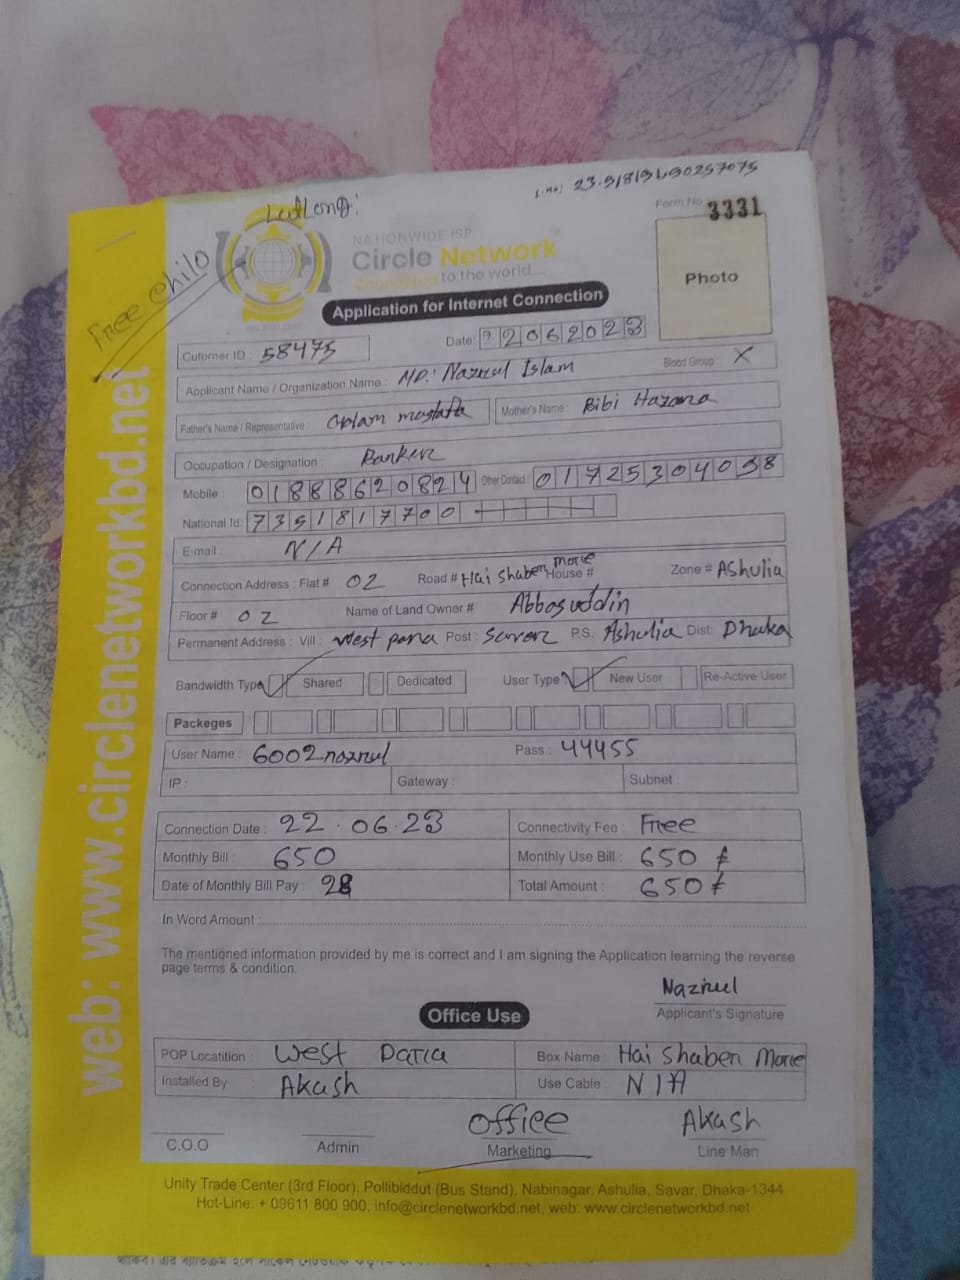 LatLong:
Form No 3331
Free chilo
NATIONWIDE ISP
Circle Network
Connected to the world....
Photo
Application for Internet Connection
Cutomer ID : 58475
Date: 22062023
Blood Group : X
Applicant Name / Organization Name : MD: Nazrul Islam
Father's Name / Representative : Golam mostafa
Mother's Name : Bibi Hazara
Occupation / Designation : Banker
Mobile : 01888620824 Other Contact : 01725304038
National Id: 7351817700
E-mail : N/A
Connection Address : Flat # 02 Road # Hai Shaben More House # Zone # Ashulia
Floor # 02 Name of Land Owner # Abbas uddin
Permanent Address : Vill : West para Post : Saver P.S. Ashulia Dist Dhaka
Bandwidth Type Shared Dedicated User Type New User Re-Active User
Packeges
User Name : 6002nazrul Pass : 44455
IP : Gateway : Subnet :
Connection Date : 22.06.23 Connectivity Fee : Free
Monthly Bill : 650 Monthly Use Bill : 650
Date of Monthly Bill Pay : 28 Total Amount : 650
In Word Amount :
The mentioned information provided by me is correct and I am signing the Application learning the reverse
page terms & condition.
Nazrul
Applicant's Signature
Office Use
POP Locatition : West Para Box Name : Hai Shaben More
Installed By : Akash Use Cable : N/A
Office Akash
C.O.O Admin Marketing Line Man
Unity Trade Center (3rd Floor), Pollibiddut (Bus Stand), Nabinagar, Ashulia, Savar, Dhaka-1344
Hot-Line: + 09611 800 900, info@circlenetworkbd.net, web: www.circlenetworkbd.net
web: www.circlenetworkbd.net